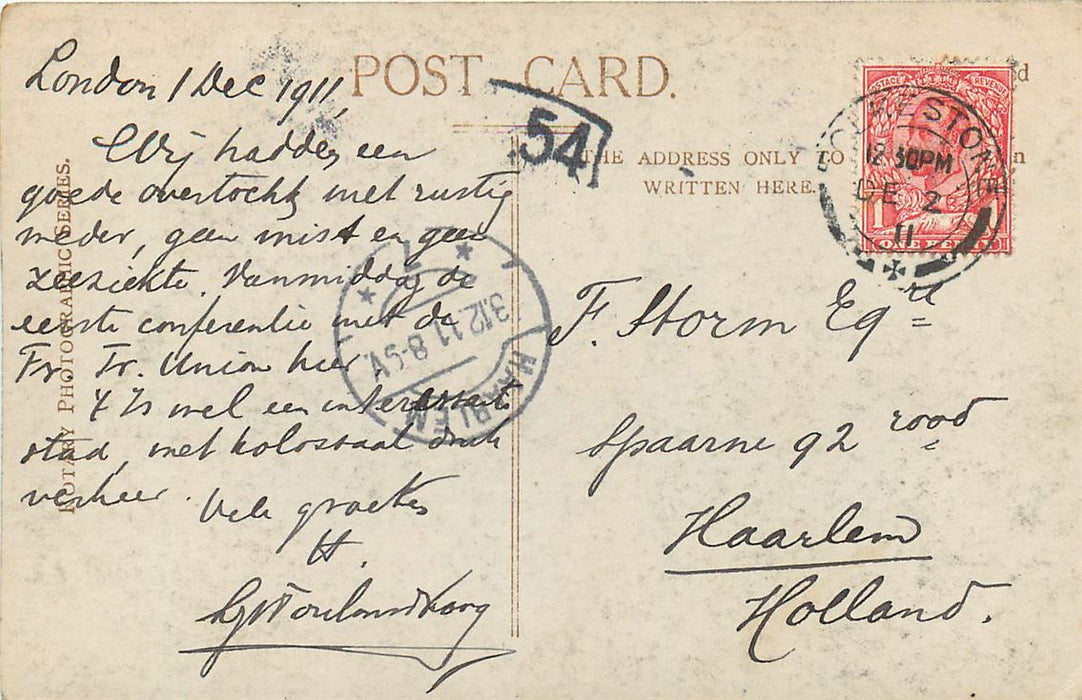 POST CARD.
London 1 Dec 1911,
Wij hadden een
goede overtocht met rustig
weder, geen mist en geen
zeeziekte. Vanmiddag de
eerste conferentie met de
Fr. Tr. Union hier
't Is wel een interessante
stad, met kolossaal druk
verkeer.
Vele groeten
H.
ROTARY PHOTOGRAPHIC SERIES.
54
THE ADDRESS ONLY TO
WRITTEN HERE.
POSTAGE REVENUE
ONE PENNY
FOLKESTONE
12 30PM
DE 2
11
HAARLEM
3.12.11 8-9V
F. Storm Eqre
Spaarne 92 rood
Haarlem
Holland.